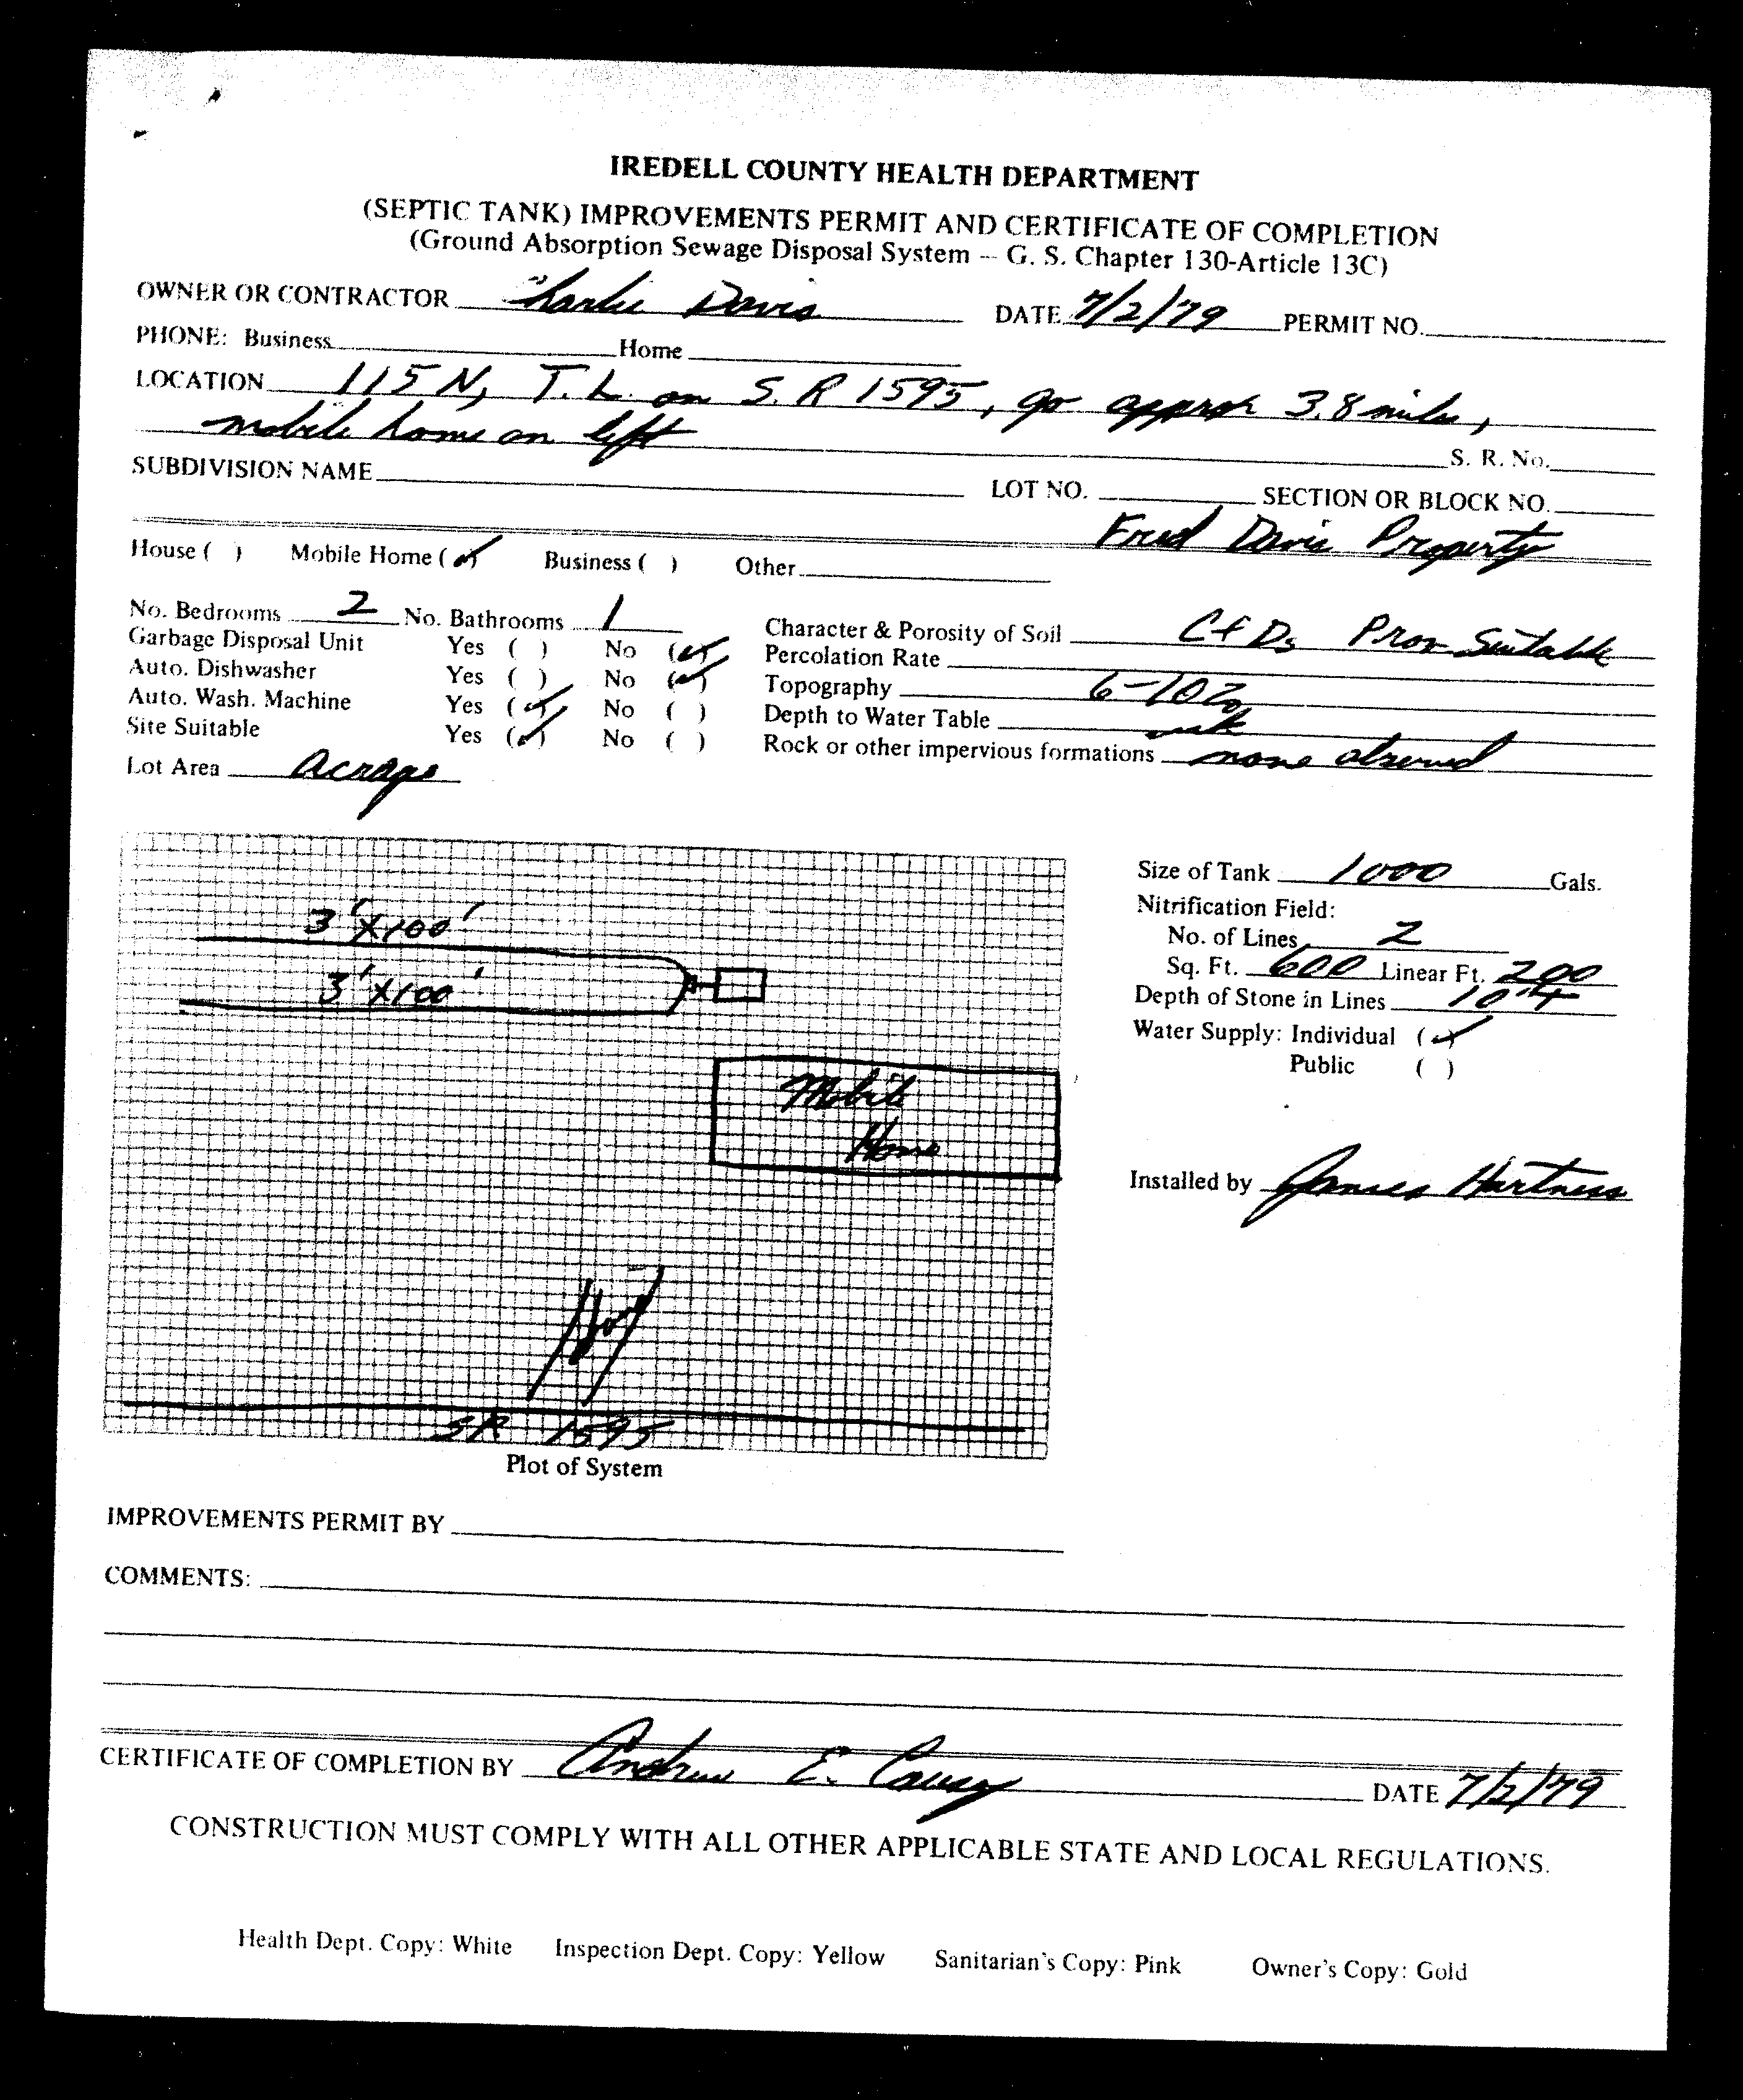 IREDELL COUNTY HEALTH DEPARTMENT
(SEPTIC TANK) IMPROVEMENTS PERMIT AND CERTIFICATE OF COMPLETION
(Ground Absorption Sewage Disposal System -- G. S. Chapter 130-Article 13C)
OWNER OR CONTRACTOR Charlie Davis DATE 7/2/79 PERMIT NO.
PHONE: Business Home
LOCATION 115 N, T.L. on S.R 1595, go approx 3.8 miles,
mobile home on left S. R. No.
SUBDIVISION NAME LOT NO. SECTION OR BLOCK NO.
Fred Davis Property
House ( ) Mobile Home (✓) Business ( ) Other
No. Bedrooms 2 No. Bathrooms 1
Garbage Disposal Unit Yes ( ) No (✓)
Auto. Dishwasher Yes ( ) No (✓)
Auto. Wash. Machine Yes (✓) No ( )
Site Suitable Yes (✓) No ( )
Lot Area Acrage
Character & Porosity of Soil Suitable
Percolation Rate
Topography 6-10%
Depth to Water Table
Rock or other impervious formations none observed
3'X100'
3'X100'
Mobile
Home
SR 1595
Plot of System
Size of Tank 1000 Gals.
Nitrification Field:
No. of Lines 2
Sq. Ft. 600 Linear Ft. 200
Depth of Stone in Lines 10"
Water Supply: Individual (✓)
Public ( )
Installed by James Hartness
IMPROVEMENTS PERMIT BY
COMMENTS:
CERTIFICATE OF COMPLETION BY Andrew E. Causey DATE 7/2/79
CONSTRUCTION MUST COMPLY WITH ALL OTHER APPLICABLE STATE AND LOCAL REGULATIONS.
Health Dept. Copy: White Inspection Dept. Copy: Yellow Sanitarian's Copy: Pink Owner's Copy: Gold